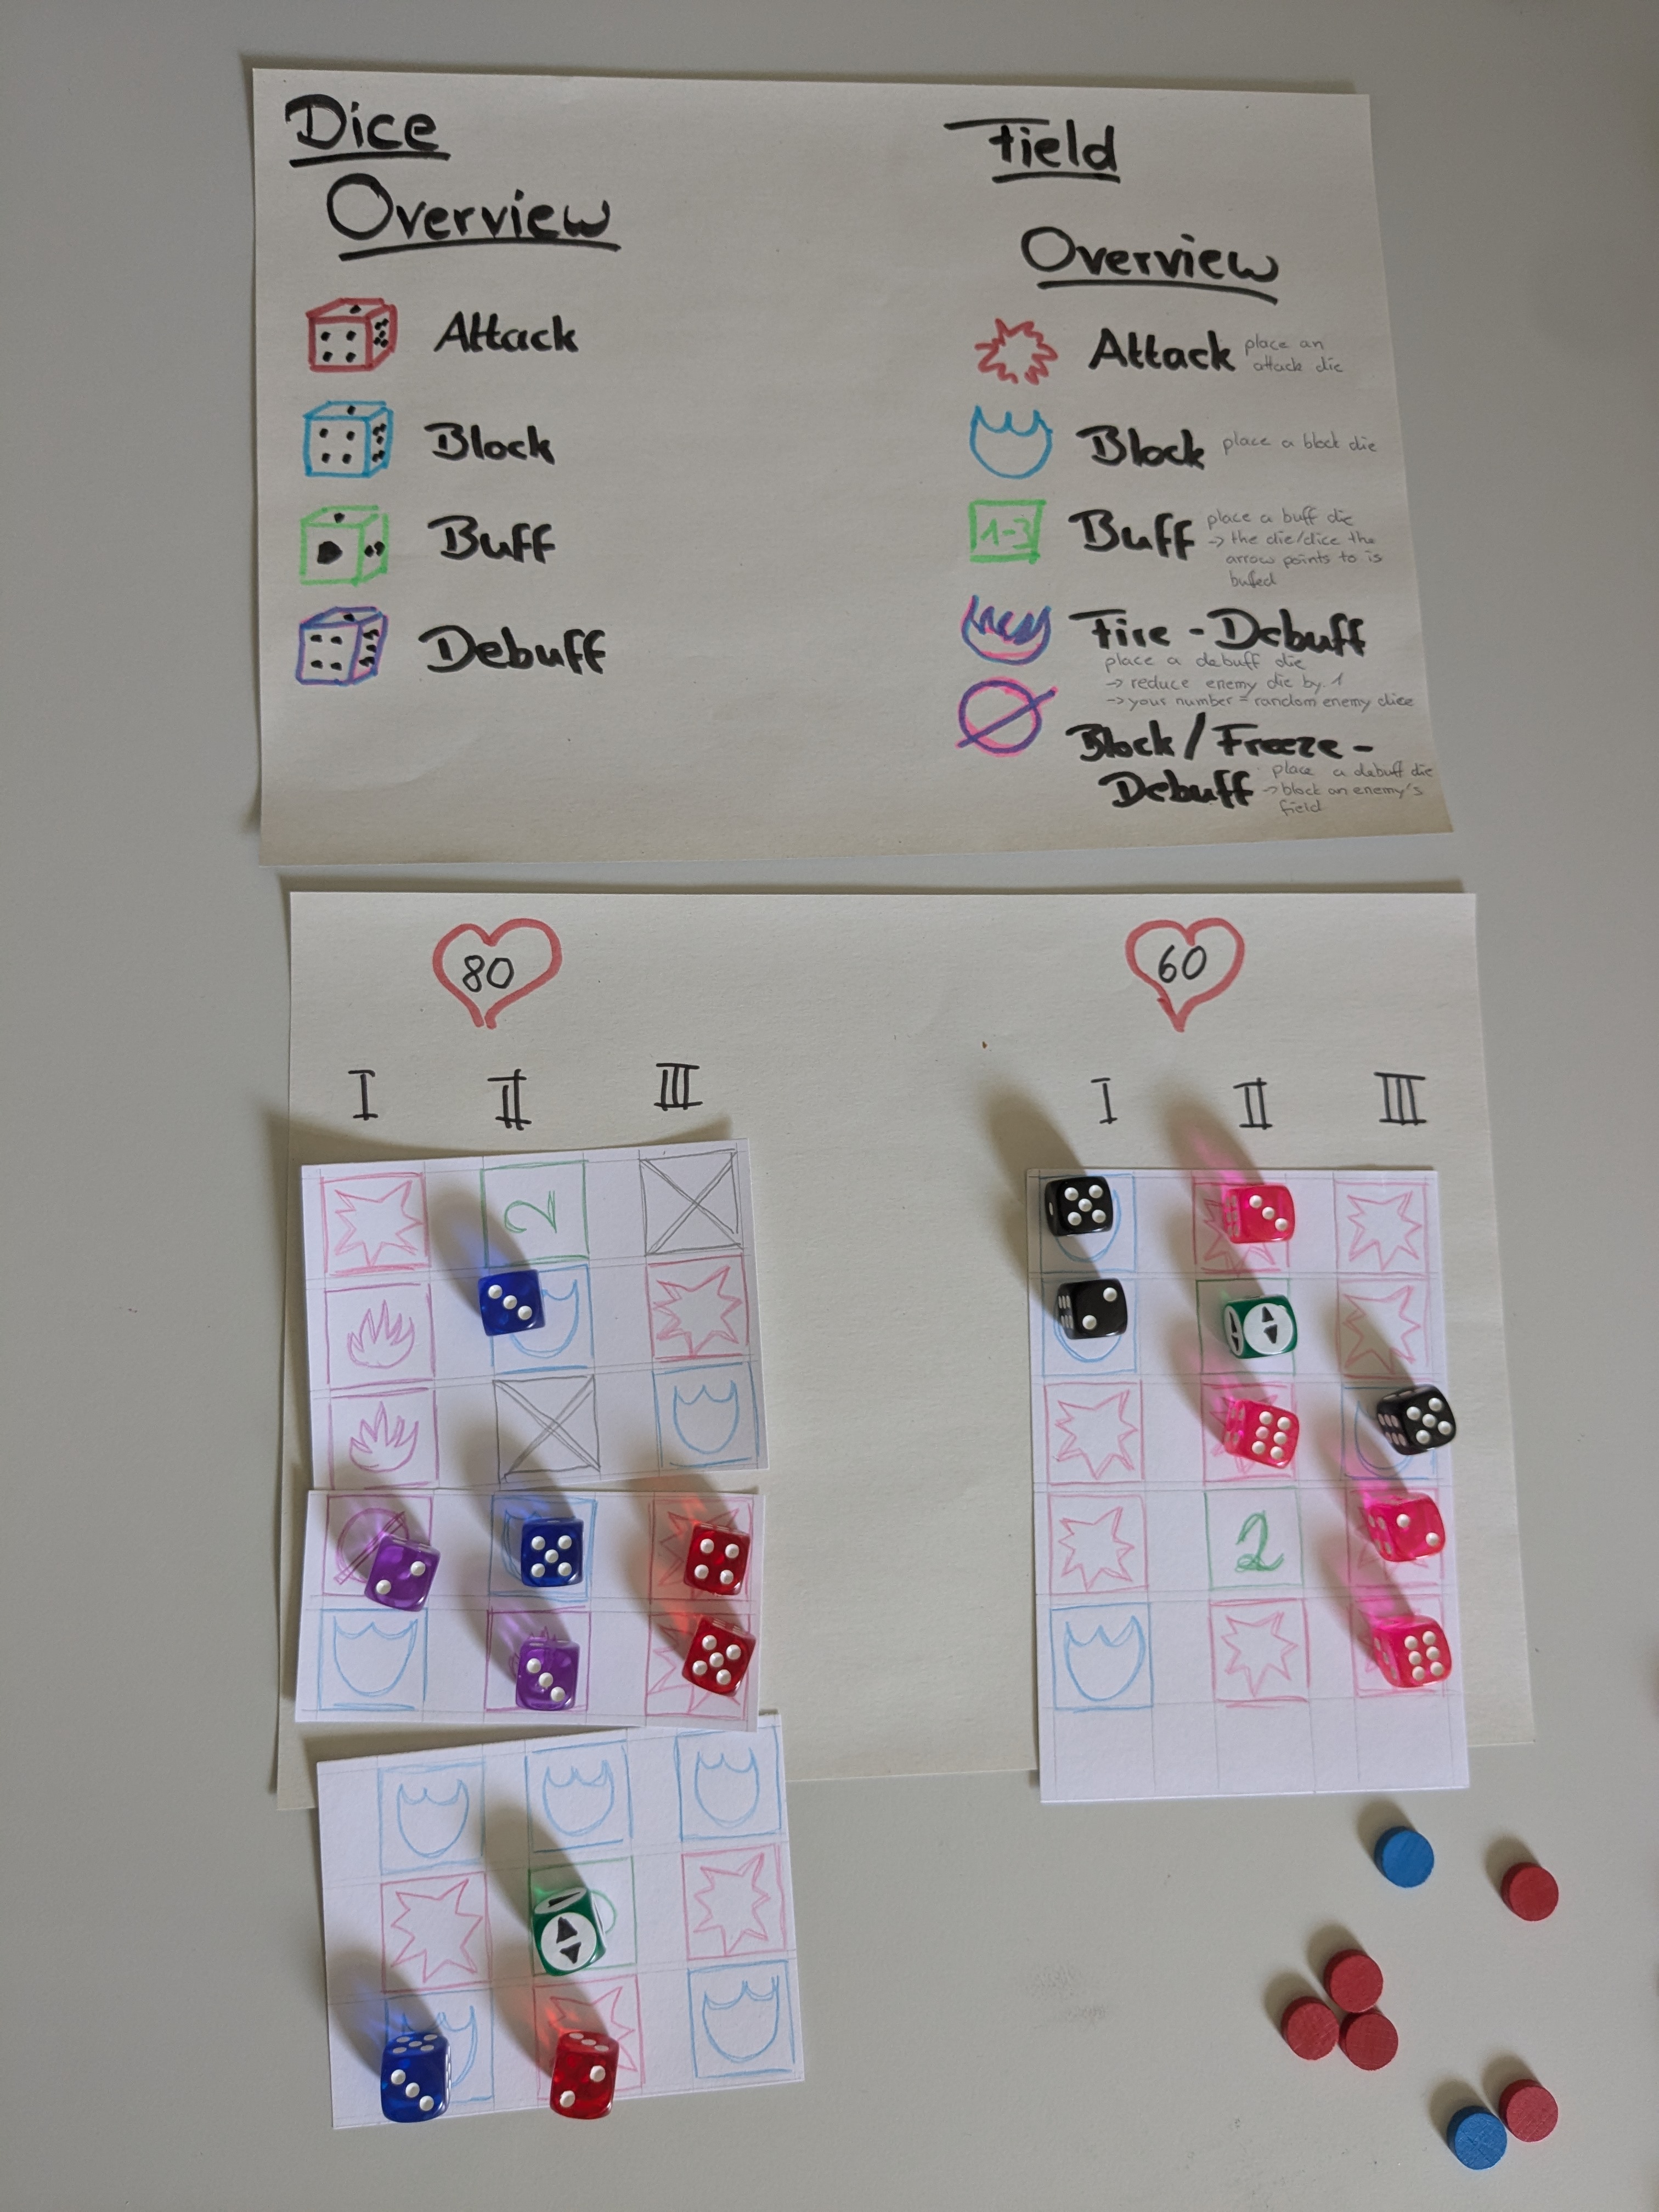 Dice
Overview
Attack
Block
Buff
Debuff
Field
Overview
Attack place an
attack die
Block place a block die
1-3 Buff place a buff die
-> the die/dice the
arrow points to is
buffed
Fire - Debuff
place a debuff die
-> reduce enemy die by 1
-> your number = random enemy dice
Block / Freeze -
Debuff place a debuff die
-> block an enemy's
field
80
60
I II III
I II III
2
2